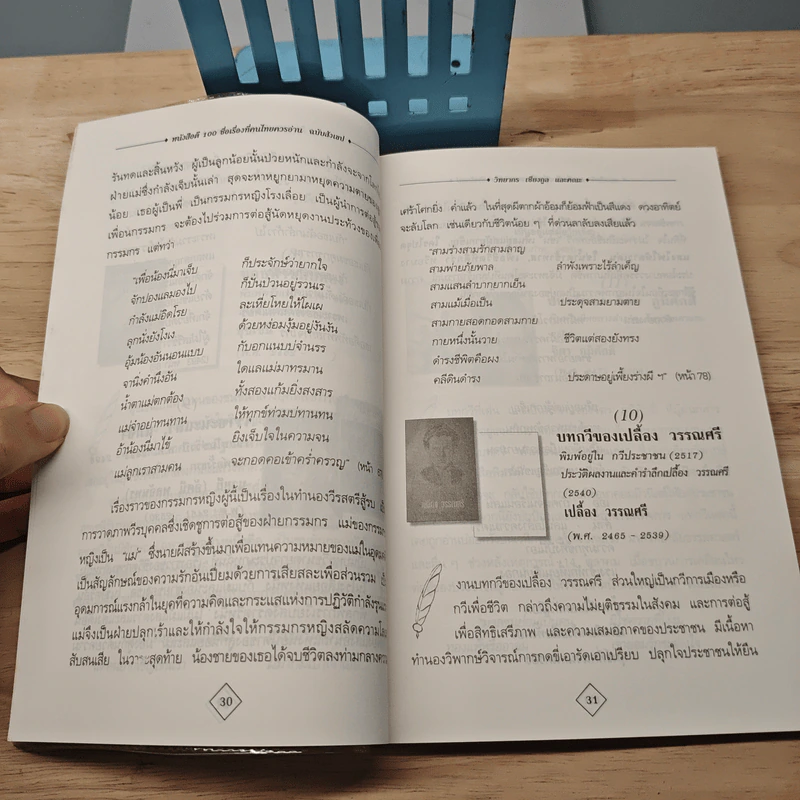 หนังสือดี 100 ชื่อเรื่องที่คนไทยควรอ่าน ฉบับสังเขป
รันทดและสิ้นหวัง ผู้เป็นลูกน้อยนั้นป่วยหนักและกำลังจะจาก
ฝ่ายแม่ซึ่งกำลังเจ็บนั้นเล่า สุดจะหาหยูกยามาหยุดความตายของ
น้อย เธอผู้เป็นพี่ เป็นกรรมกรหญิงโรงเลื่อย เป็นผู้นำการต่อสู้
เพื่อนกรรมกร จะต้องไปร่วมการต่อสู้นัดหยุดงานประท้วงของเพื่อน
กรรมกร แต่ทว่า
"เพื่อน้องนี่มาเจ็บ ก็ประจักษ์ว่ายากใจ
จักปองแลมองไป ก็ปั่นป่วนอยู่รวนเร
กำลังแม่อิดโรย ละเหี่ยโหยให้โผเผ
ลูกนั่งยังโงเง ด้วยหง่อมงุ้มอยู่งันงัน
อุ้มน้องอันนอนแบบ กับอกแนบบ่จำนรร
จานิ่งคำนึงอัน ใดแลแม่มาทรมาน
น้ำตาแม่ตกต้อง ทั้งสองแก้มยิ่งสงสาร
แม่จ๋าอย่าทนทาน ให้ทุกข์ท่วมบ่ทานทน
อ้าน้องนี่มาไข้ ยิ่งเจ็บใจในความจน
แม่ลูกเราสามคน จะกอดคอเข้าคร่ำครวญ" (หน้า
เรื่องราวของกรรมกรหญิงผู้นี้เป็นเรื่องในทำนองวีรสตรีสู้รบ
การวาดภาพวีรบุคคลซึ่งเชิดชูการต่อสู้ของฝ่ายกรรมกร แม่ของกรรมกร
หญิงเป็น "แม่" ซึ่งนายผีสร้างขึ้นมาเพื่อแทนความหมายของแม่ในอุดมคติ
เป็นสัญลักษณ์ของความรักอันเปี่ยมด้วยการเสียสละเพื่อส่วนรวม
อุดมการณ์แรงกล้าในยุคที่ความคิดและกระแสแห่งการปฏิวัติกำลังรุนแรง
แม่จึงเป็นฝ่ายปลุกเร้าและให้กำลังใจให้กรรมกรหญิงสลัดความโศก
สับสนเสีย ในวาระสุดท้าย น้องชายของเธอได้จบชีวิตลงท่ามกลางความ
30
วิทยากร เชียงกูล และคณะ
เศร้าโศกยิ่ง ค่ำแล้ว ในที่สุดผีตากผ้าอ้อมก็ย้อมฟ้าเป็นสีแดง ดวงอาทิตย์
จะลับโลก เช่นเดียวกับชีวิตน้อย ๆ ที่ด่วนลาลับลงเสียแล้ว
"สามร่างสามรักสามลาญ
สามพ่ายภัยพาล ลำพังเพราะไร้ลำเค็ญ
สามแสนลำบากยากเย็น
สามแม้เมื่อเป็น ประดุจสามยามตาย
สามกายสอดกอดสามกาย
กายหนึ่งนั้นวาย ชีวิตแต่สองยังทรง
ดำรงชีพิตคือผง
คลีดินดำรง ประดาษอยู่เพี้ยงร่างผี ฯ" (หน้า 78)
(10)
บทกวีของเปลื้อง วรรณศรี
พิมพ์อยู่ใน กวีประชาชน (2517)
ประวัติผลงานและคำรำลึกเปลื้อง วรรณศรี
(2540)
เปลื้อง วรรณศรี
(พ.ศ. 2465 - 2539)
งานบทกวีของเปลื้อง วรรณศรี ส่วนใหญ่เป็นกวีการเมืองหรือ
กวีเพื่อชีวิต กล่าวถึงความไม่ยุติธรรมในสังคม และการต่อสู้
เพื่อสิทธิเสรีภาพ และความเสมอภาคของประชาชน มีเนื้อหา
ทำนองวิพากษ์วิจารณ์การกดขี่เอารัดเอาเปรียบ ปลุกใจประชาชนให้ยืน
31